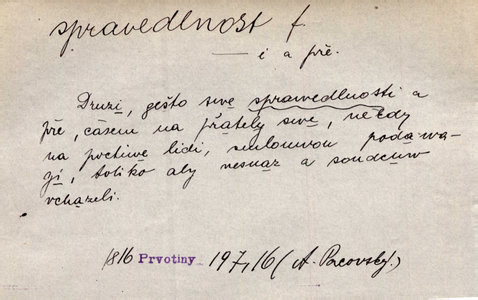 spravedlnost f.
— i a pře.
Druzi, gešto swé sprawedlnosti a
pře, časem na přátely swé, někdy
na poctiwé lidi, smlouwou podáwa-
gí, toliko aby nesnáz a saudcůw
vcházeli.
1816 Prvotiny 197,16 (A. Pacovský.)